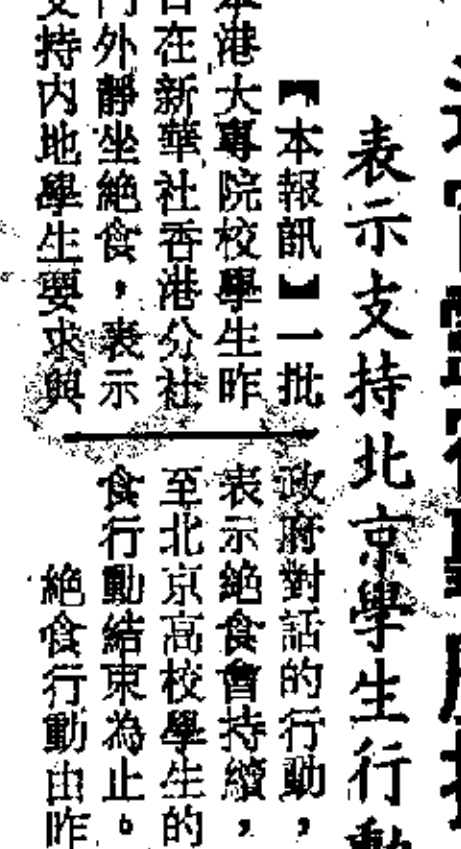 表示支持北京學生行動
【本報訊】一批
本港大專院校學生昨
日在新華社香港分社
門外靜坐絕食，表示
支持内地學生要求與
政府對話的行動，
表示絕食會持續，
至北京高校學生的
食行動結束為止。
絕食行動由昨